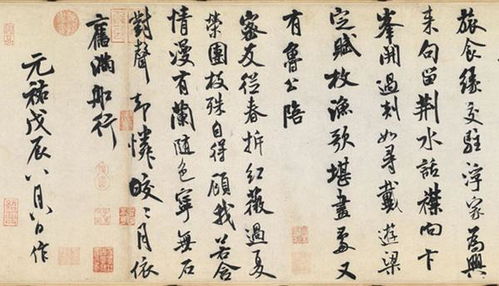 旅食緣交駐浮家為興
來句留荊水話襟向卞
峯開過剡如尋戴遊梁
定賦枚漁歌堪畫處又
有魯公陪
密友從春拆紅薇過夏
榮團枝殊自得顧我若含
情漫有蘭隨色寧無石
對聲却憐皎々月依
舊滿船行
元祐戊辰八月八日作